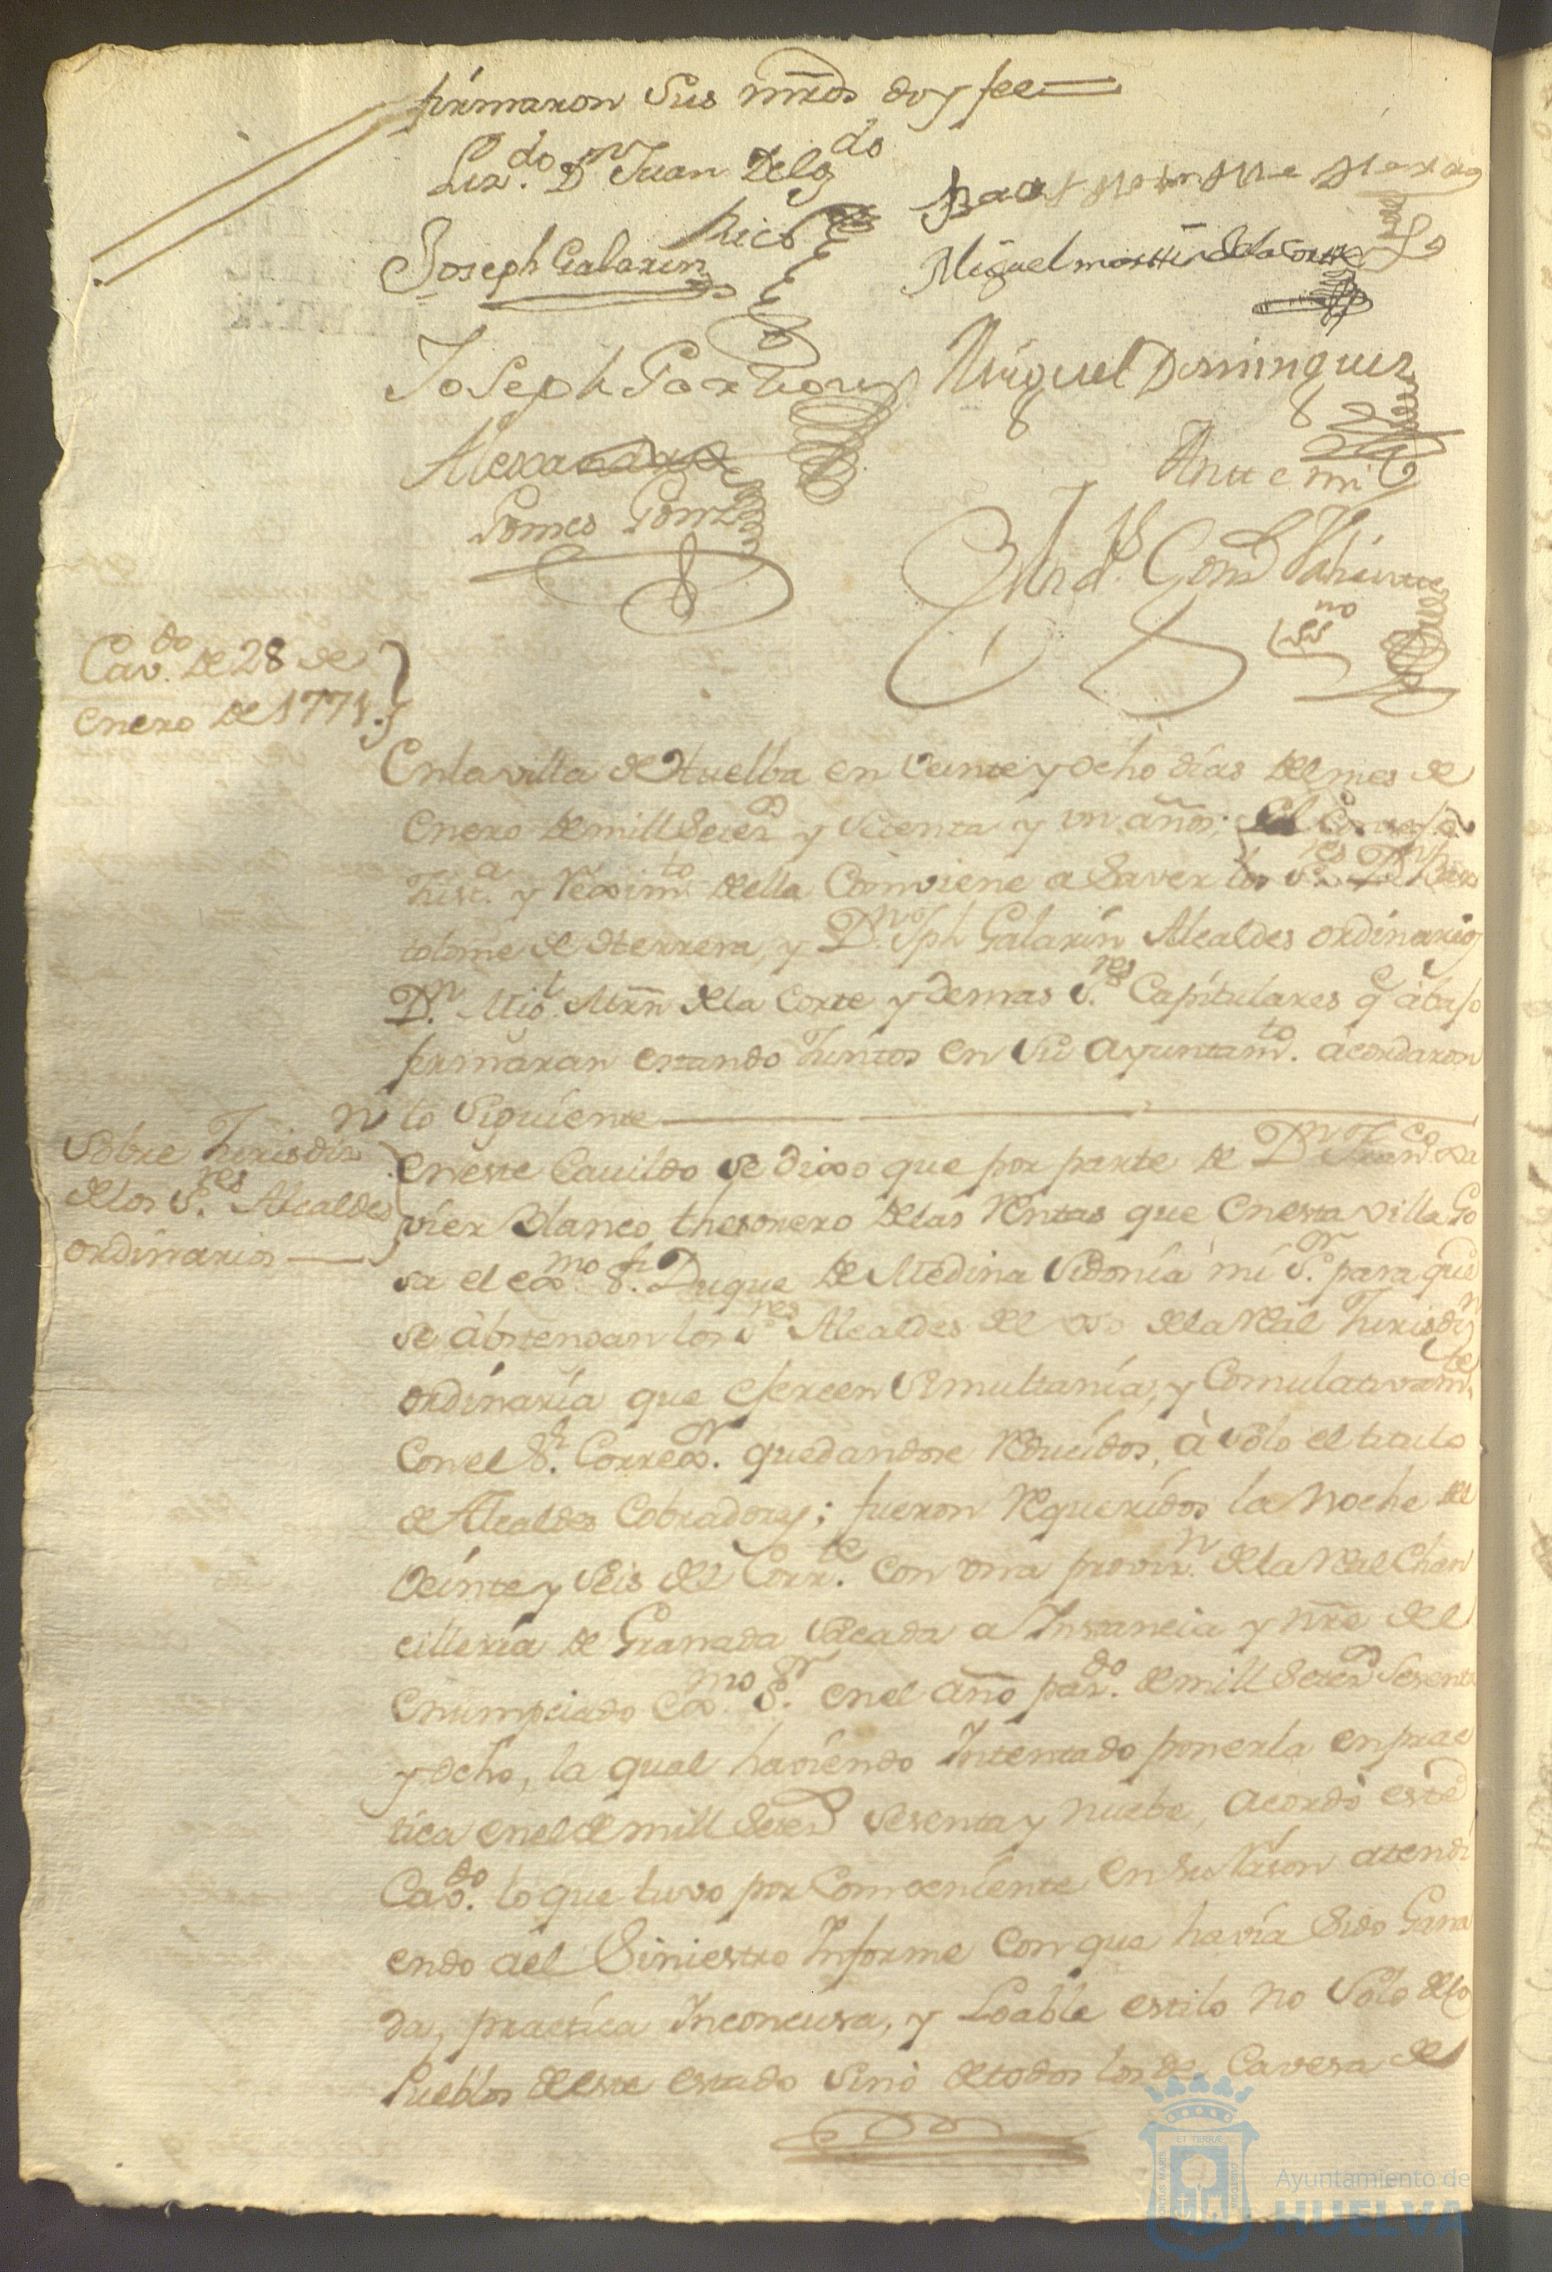 firmaron Sus mrds doy fee
Lizdo. Dn Juan Delgdo
Rico
Joseph Galarin
Miguel martin de la Corte
Joseph
Miguel Dominguez
Alexandro
Gomes Gonz
Ante mi
Gonz
no
Cavdo. de 28 de
enero de 1771.
Enla villa de Huelba en veinte y ocho días del mes de
Enero de mill Setezs y Setenta y un años; el Consejo
Justa. y Rexim.to della Combiene a Saver los Sres. Dn Bar
tolome de Herrera, y Dn. Jph Galarín Alcaldes ordinarios
Dn. Migl Mrn dela Corte y demas Sres. Capitulares q abajo
firmaran estando Juntos en Su Ayuntamto. acordaron
lo Siguiente
Sobre Jurisdizn
delos Sres. Alcaldes
ordinarios
eneste Cavildo Se dixo que por parte de Dn Franco Xa
vier Blanco thesorero delas Rentas que enesta villa Go
sa el exmo. Sr. Duque de Medina Sidonia mi Sor. para que
se abstengan los Sres Alcaldes del uso dela Real Jurisdizn
ordinaria que esercen Simultanía, y Comulativamte.
Con el Sr. Correxor. quedandose Reducidos, à solo el titulo
de Alcaldes Cobradores; fueron Requeridos la noche del
veinte y Seis del Corrte. con una provizn. dela Real Chan
cilleria de Granada Sacada a Instancia y nre del
enumpciado Exmo. Sr. en el año pasdo. de mill Setezs Sesenta
y ocho, la qual haviendo Intentado ponerla en prac
tica en el de mill Setezs Sesenta y nuebe, acordò este
Cavdo. lo que tuvo por Combeniente en su Rason atendi
endo al Siniestro Informe con que havia Sido Gana
da, practica Inconcusa, y Loable estilo no Solo delos
Pueblos deeste estado Sinò de todos los de Cavesa de
Ayuntamiento de
HUELVA